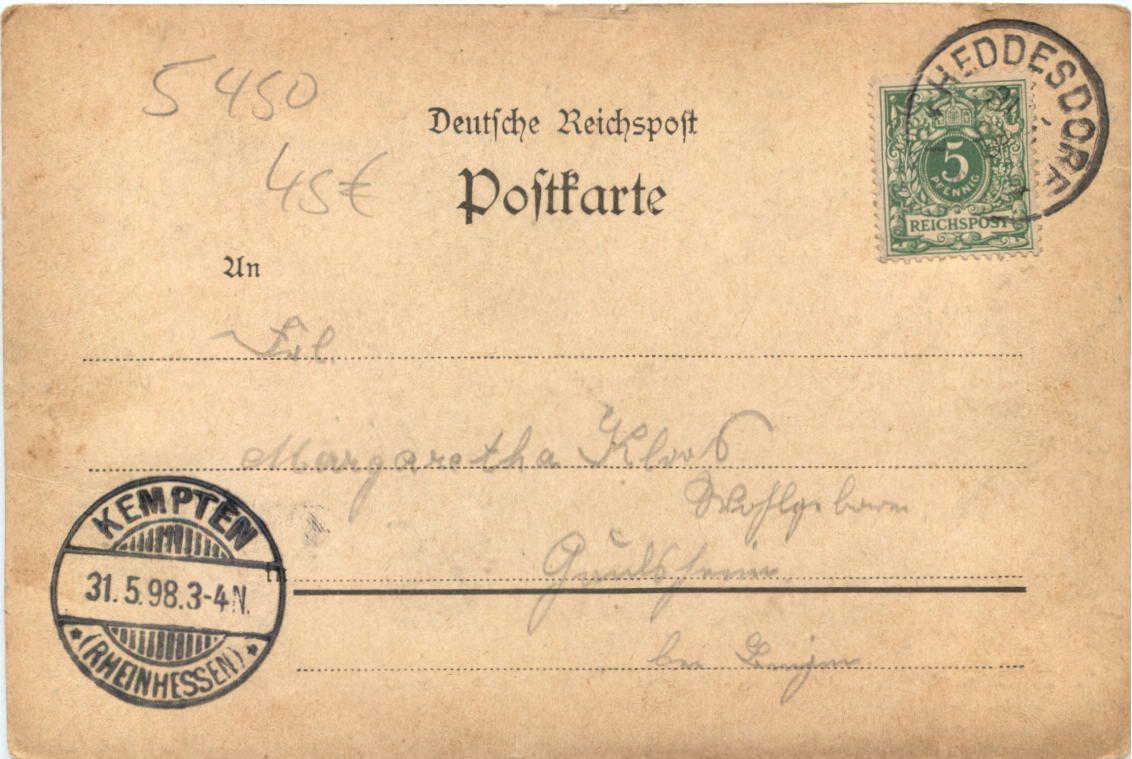 5 450
45 €
Deutsche Reichspost
Postkarte
HEDDESDORF
5
PFENNIG
REICHSPOST
An
Frl.
Margaretha Kloos
Wohlgeboren
bei Bingen
KEMPTEN
31.5.98.3-4N.
* (RHEINHESSEN) *